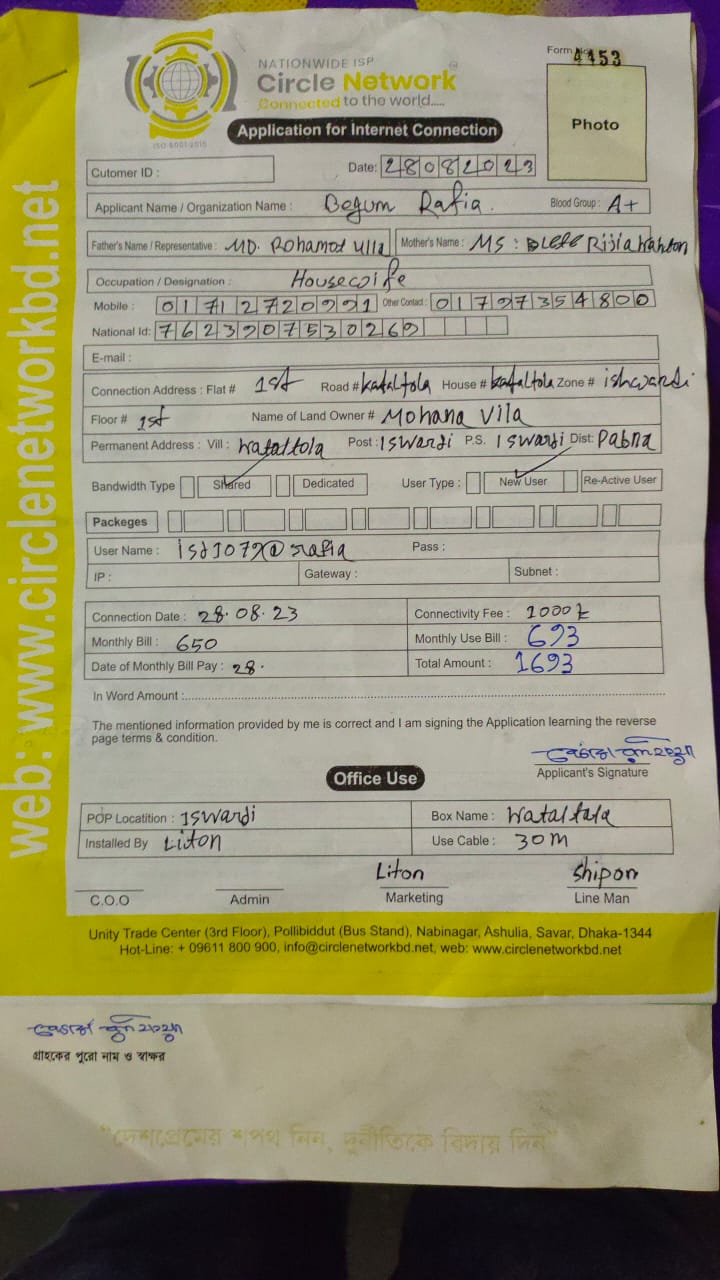 NATIONWIDE ISP
Circle Network
Connected to the world.....
ISO 9001:2015
Form No 4453
Photo
Application for Internet Connection
Cutomer ID :
Date: 28082023
Applicant Name / Organization Name : Begum Rafia. Blood Group : A+
Father's Name / Representative : MD. Rohamot ulla Mother's Name : MS :
Occupation / Designation : Housewife
Mobile : 01712720991 Other Contact : 01797354800
National Id: 7623907530269
E-mail :
Connection Address : Flat # 1st Road # kataltola House # kataltola Zone # ishwardi
Floor # 1st Name of Land Owner # Mohana Vila
Permanent Address : Vill : wataltola Post : ISwardi P.S. ISwardi Dist: Pabna
Bandwidth Type Shared Dedicated User Type : New User Re-Active User
Packeges
User Name : isd1079@rafia Pass :
IP : Gateway : Subnet :
Connection Date : 28.08.23 Connectivity Fee : 1000
Monthly Bill : 650 Monthly Use Bill : 693
Date of Monthly Bill Pay : 28. Total Amount : 1693
In Word Amount :
The mentioned information provided by me is correct and I am signing the Application learning the reverse
page terms & condition.
Applicant's Signature
Office Use
POP Locatition : ISwardi Box Name : wataltala
Installed By Liton Use Cable : 30M
Liton Shipon
C.O.O Admin Marketing Line Man
Unity Trade Center (3rd Floor), Pollibiddut (Bus Stand), Nabinagar, Ashulia, Savar, Dhaka-1344
Hot-Line: + 09611 800 900, info@circlenetworkbd.net, web: www.circlenetworkbd.net
web: www.circlenetworkbd.net
গ্রাহকের পুরো নাম ও স্বাক্ষর
"দেশপ্রেমের শপথ নিন, দুর্নীতিকে বিদায় দিন"